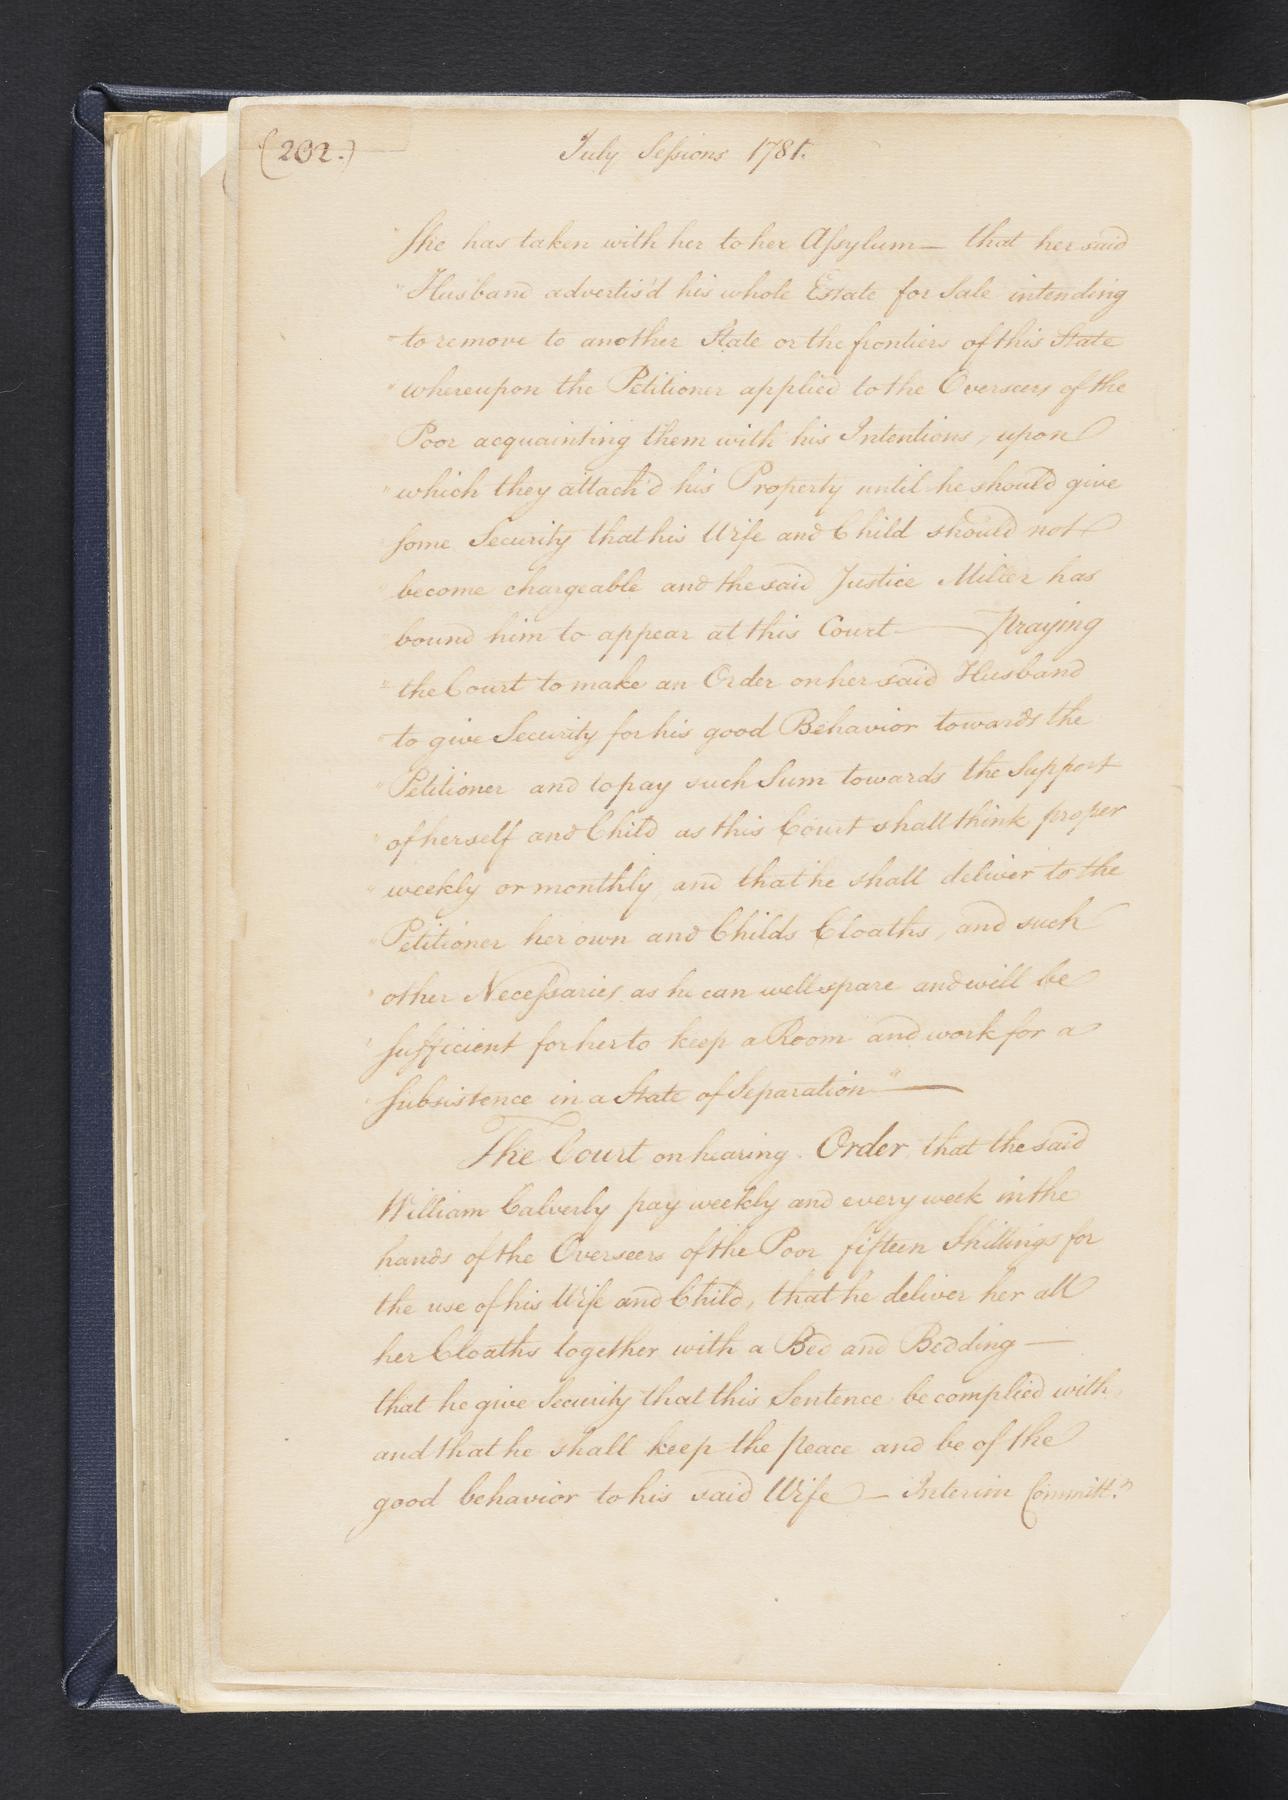 (202.)
July Sessions 1781.
"She has taken with her to her Assylum — that her said
"Husband advertis'd his whole Estate for Sale intending
"to remove to another State or the frontiers of this State
"whereupon the Petitioner applied to the Overseers of the
"Poor acquainting them with his Intentions, upon
"which they attach'd his Property until he should give
"some Security that his Wife and Child should not
"become chargeable and the said Justice Miller has
"bound him to appear at this Court — praying
"the Court to make an Order on her said Husband
"to give Security for his good Behavior towards the
"Petitioner and to pay such Sum towards the Support
"of herself and Child as this Court shall think proper
"weekly or monthly, and that he shall deliver to the
"Petitioner her own and Childs Cloaths, and such
"other Necessaries as he can well spare and will be
"sufficient for her to keep a Room and work for a
"Subsistence in a State of Separation" —
The Court on hearing. Order, that the said
William Calverly pay weekly and every week in the
hands of the Overseers of the Poor fifteen Shillings for
the use of his Wife and Child, that he deliver her all
her Cloaths together with a Bed and Bedding —
that he give Security that this Sentence be complied with,
and that he shall keep the peace and be of the
good behavior to his said Wife — Interim Committ.d